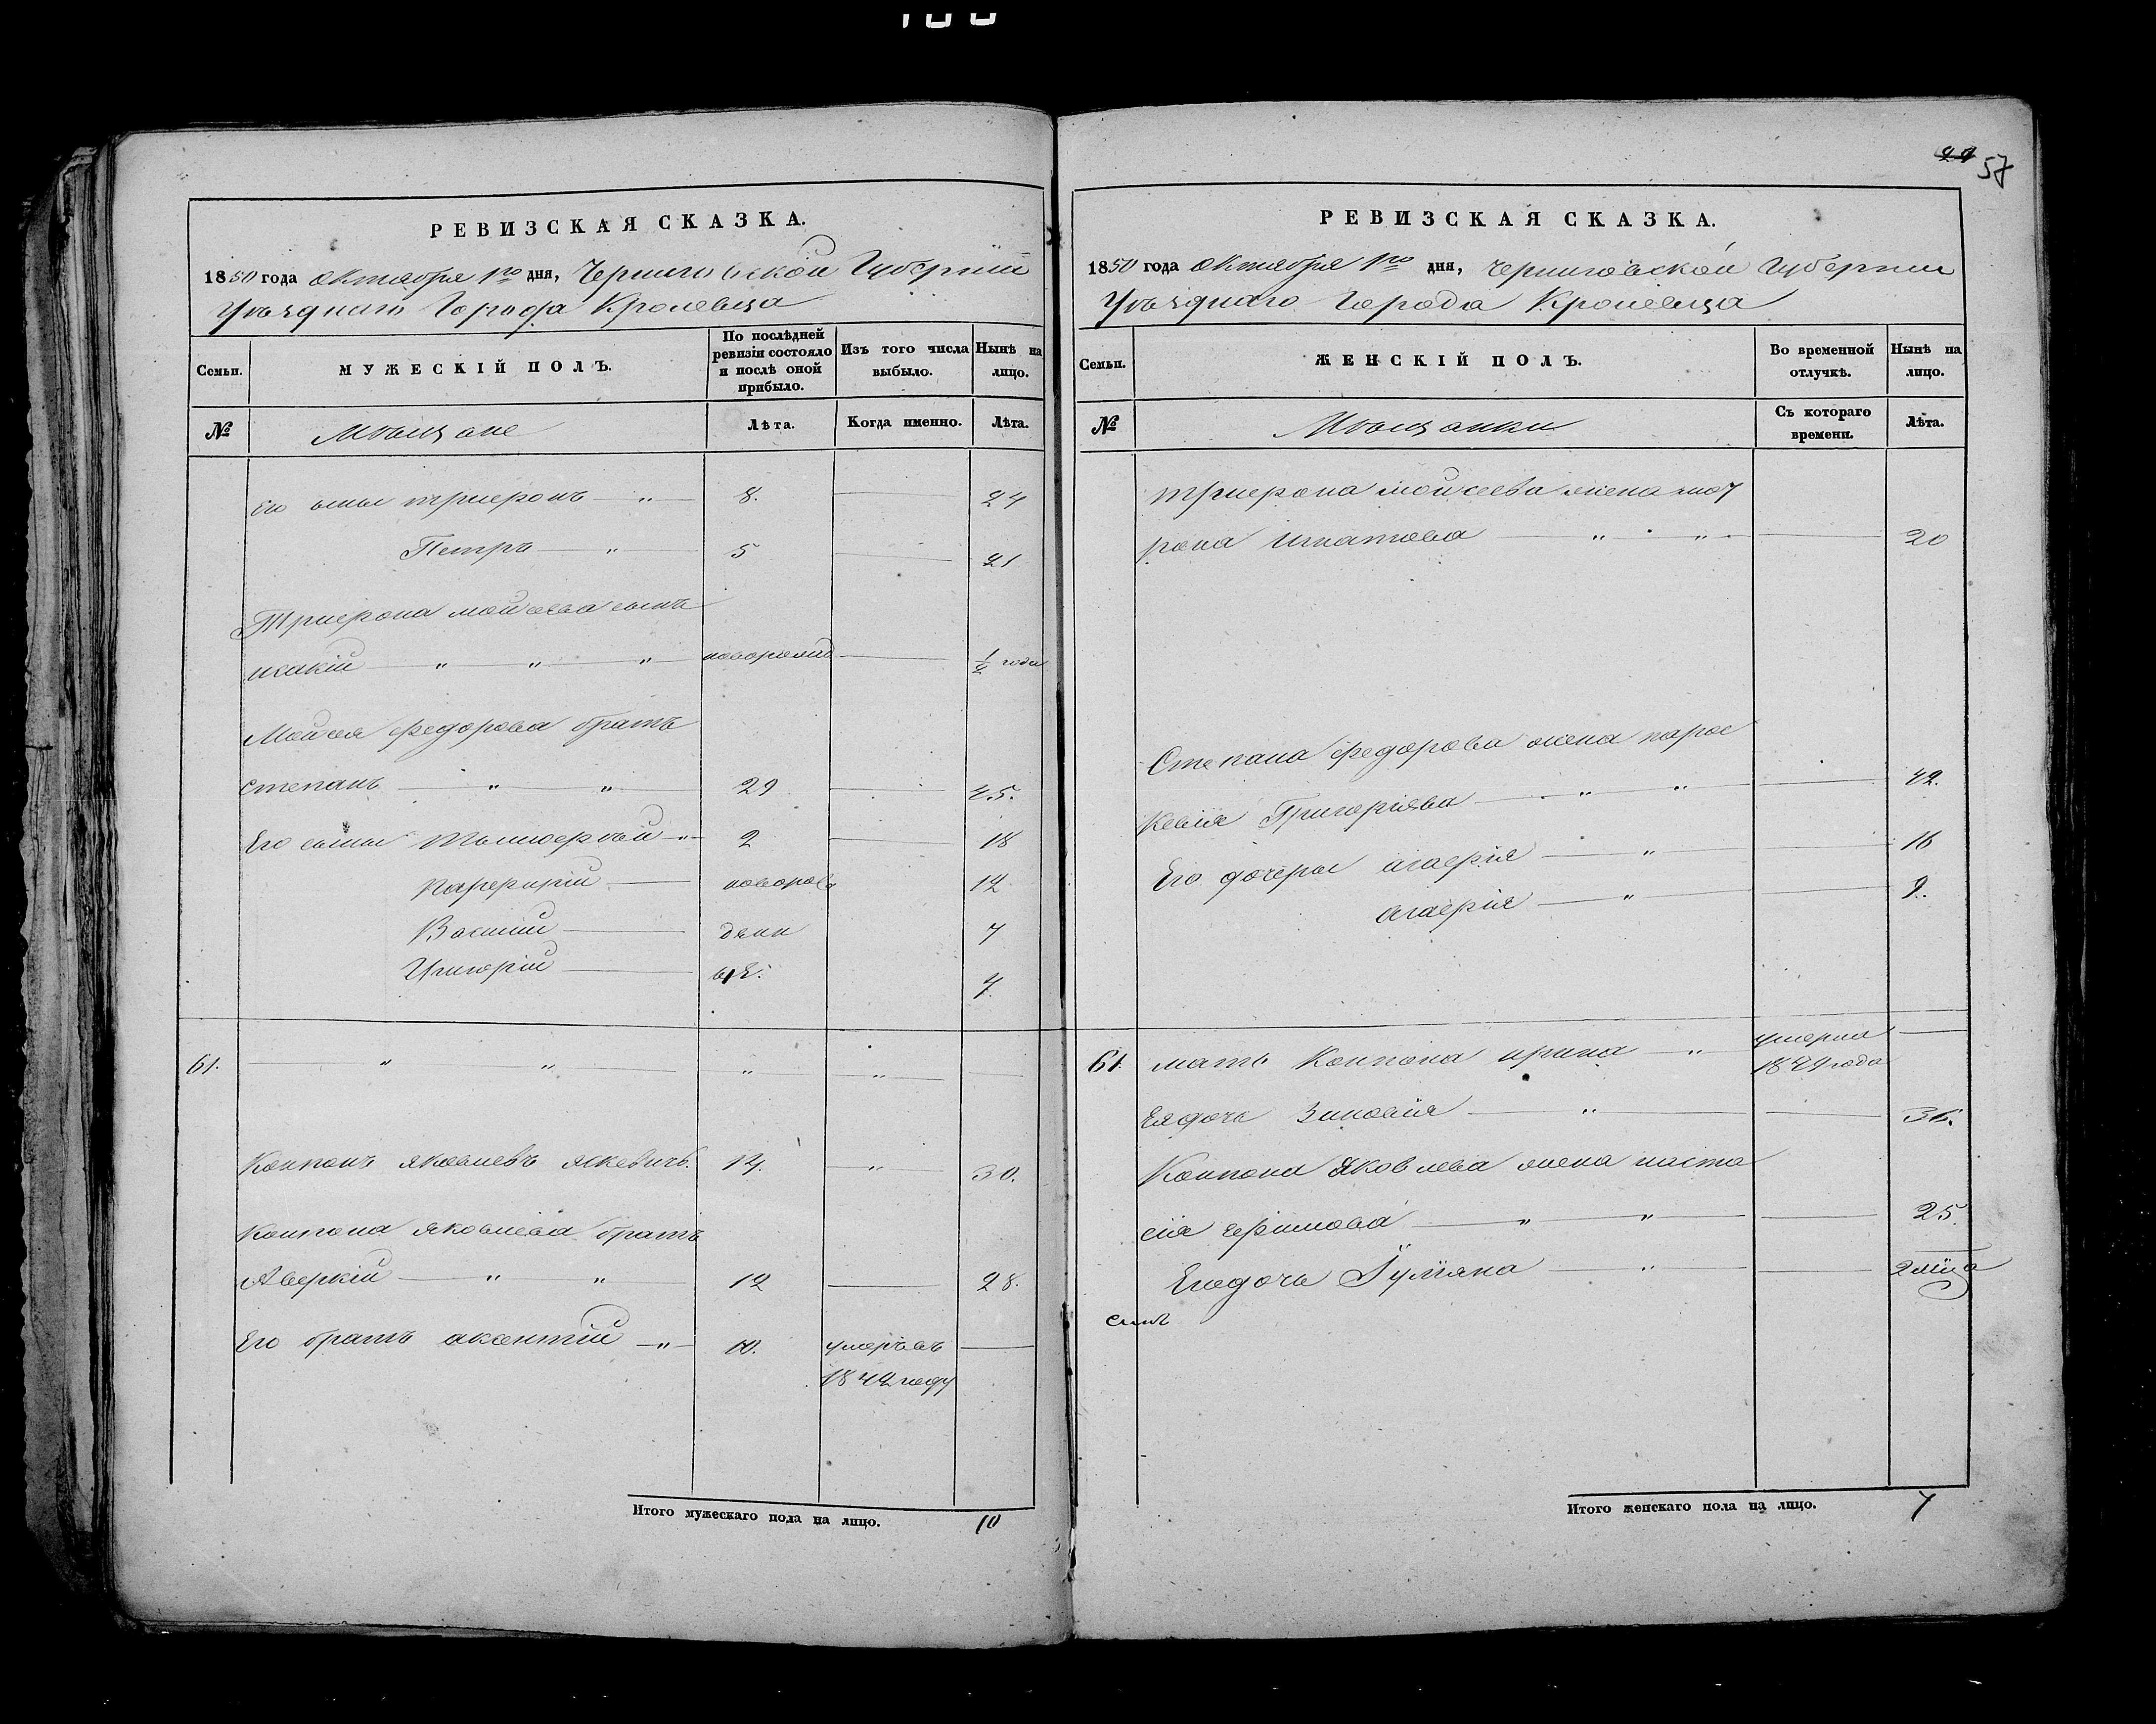 57
РЕВИЗСКАЯ СКАЗКА.
1850 года октября 1го дня, Черниговской Губернии
Уѣзднаго Города Кролевца
Семьи.
МУЖЕСКІЙ ПОЛЪ.
По послѣдней ревизіи состояло и послѣ оной прибыло.
Изъ того числа выбыло.
Нынѣ на лицо.
№
Мѣщане
Лѣта.
Когда именно.
Лѣта.
Его сыны Трифонъ — „ — 8. — 24
Петръ — „ — 5 — 21
Трифона Мойсева сынъ
исакій — „ „ „ новорожд — ½ года
Мойсея Федорова братъ
степанъ — „ „ — 29 — 45.
Его сыны — „ — 2 — 18
новорож 12
Василій — дены 7
Григорій — 7.
61. — „ „ — „ — „ — —
яковлевъ 14. — „ — 30.
яковлева братъ
Аверкій — „ „ — 12 — 28.
Его братъ аксентій — „ — 10. умеръ въ —
1842 году
Итого мужескаго пола на лицо. 10
РЕВИЗСКАЯ СКАЗКА.
1850 года октября 1го дня, Черниговской Губернии
Уѣзднаго Города Кролевца
Семьи.
ЖЕНСКІЙ ПОЛЪ.
Во временной отлучкѣ.
Нынѣ на лицо.
№
Мѣщанки
Съ котораго времени.
Лѣта.
Трифона Мойсеева жена
Игнатова — „ „ — 20
Степана Федорова жена парас
кевія Григоріева — „ „ — 42.
Его дочеры агафія — „ — 16
агафія — „ — 9.
61. мать ирина — „ умерла —
1849 года
Ея дочь Зиновія — „ — 36.
Яковлева жена наста
сія — „ „ — 25.
Его дочь Іуліяна — „ — 2 мѣца
Итого женскаго пола на лицо. 7